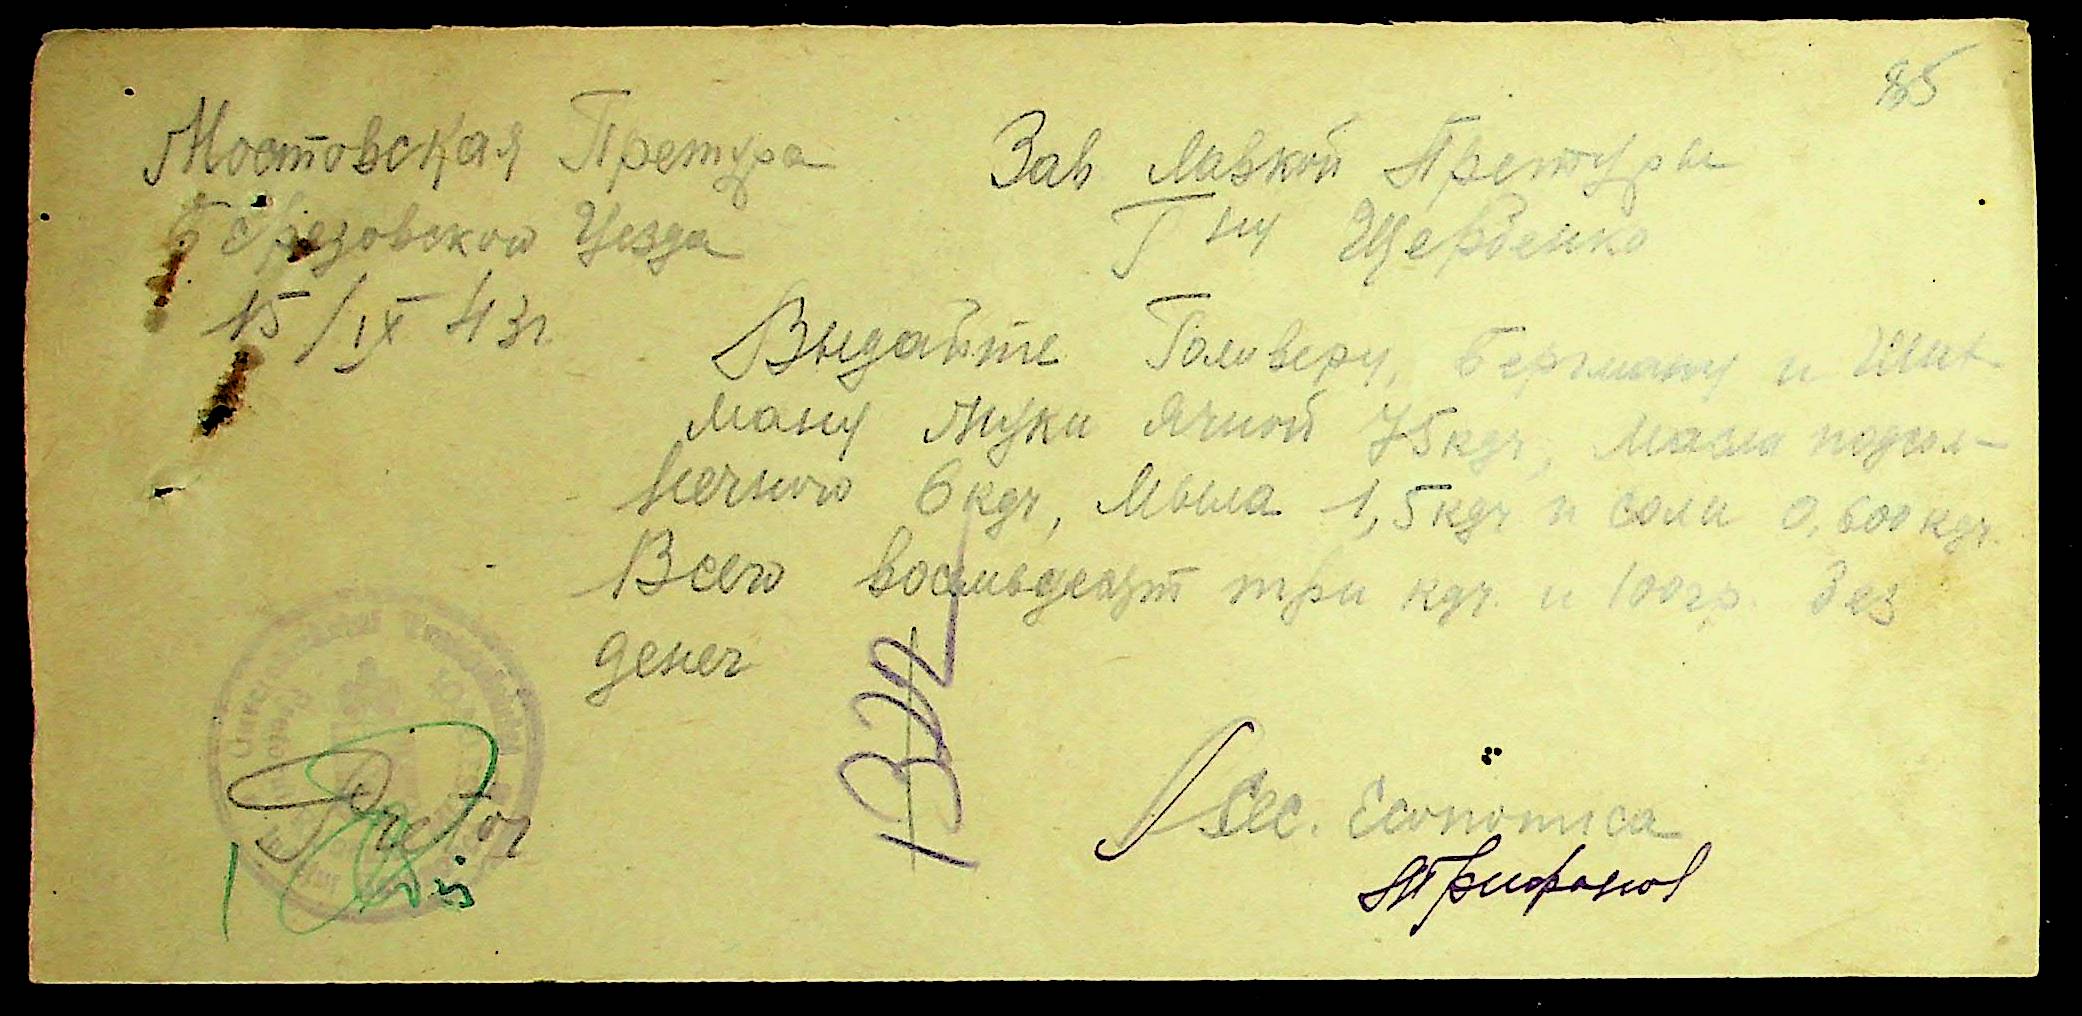 85
Мостовская Претура
Березовского Уезда
15/IX 43г.
Зав Лавкой Претуры
Г ну Щербенко
Выдайте Голиверу, Бергману и Шит
ману муки ячной 75 кгр, Масла подсол-
нечного 6 кгр, Мыла 1,5 кгр и соли 0,600 кгр.
Всего восемьдесят три кгр. и 100 гр. без
денег
Pretor
Sec. Economica
Трифонов